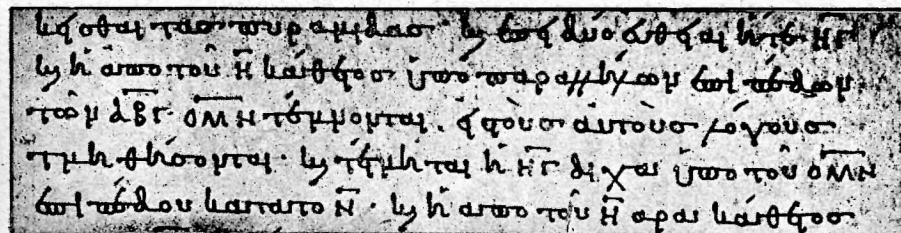 κεῖσθαι τὰς πυραμίδας· καὶ ἐπεὶ δύο εὐθεῖαι ἥ τε ΗΓ
καὶ ἡ ἀπὸ τοῦ Η κάθετος ὑπὸ παραλλήλων ἐπιπέδων
τῶν ΑΒΓ ΟΜΝ τέμνονται· εἰς τοὺς αὐτοὺς λόγους
τμηθήσονται· καὶ τέτμηται ἡ ΗΓ δίχα ὑπὸ τοῦ ΟΜΝ
ἐπιπέδου κατὰ τὸ Ν· καὶ ἡ ἀπὸ τοῦ Η ἄρα κάθετος